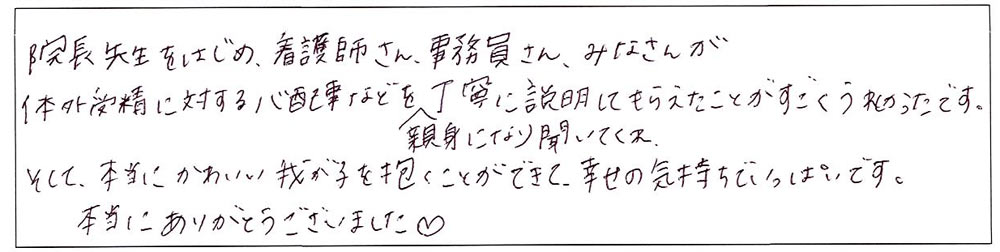 院長先生をはじめ、看護師さん、事務員さん、みなさんが
体外受精に対する心配事などを丁寧に説明してもらえたことがすごくうれかったです。
親身になり聞いてくれ、
そして、本当にかわいい我が子を抱くことができて、幸せの気持ちでいっぱいです。
本当にありがとうございました♡